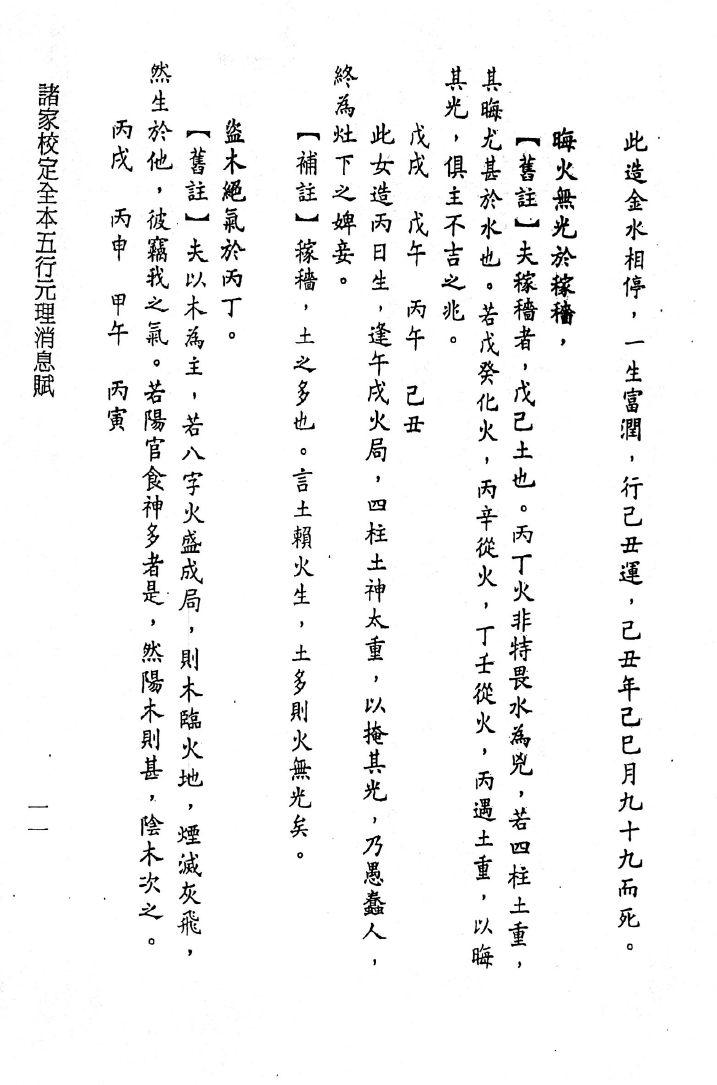 此造金水相停，一生富潤，行己丑運，己丑年己巳月九十九而死。
晦火無光於稼穡，
【舊註】夫稼穡者，戊己土也。丙丁火非特畏水為兇，若四柱土重，
其晦尤甚於水也。若戊癸化火，丙辛從火，丁壬從火，丙遇土重，以晦
其光，俱主不吉之兆。
戊戌　戊午　丙午　己丑
此女造丙日生，逢午戌火局，四柱土神太重，以掩其光，乃愚蠢人，
終為灶下之婢妾。
【補註】稼穡，土之多也。言土賴火生，土多則火無光矣。
盜木絕氣於丙丁。
【舊註】夫以木為主，若八字火盛成局，則木臨火地，煙滅灰飛，
然生於他，彼竊我之氣。若陽官食神多者是，然陽木則甚，陰木次之。
丙戌　丙申　甲午　丙寅
諸家校定全本五行元理消息賦
一一